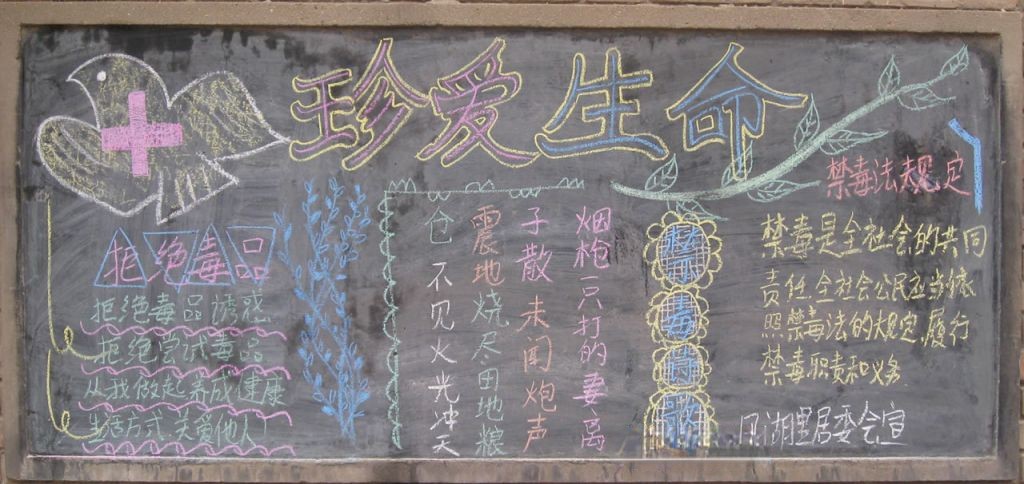 珍爱生命
拒绝毒品
拒绝毒品诱惑
拒绝尝试毒品
从我做起养成健康
生活方式关爱他人
烟枪一只打的妻离
子散未闻炮声
震地烧尽田地粮
仓不见火光冲天
禁毒诗
禁毒法规定
禁毒是全社会的共同
责任.全社会公民应当依
照禁毒法的规定.履行
禁毒职责和义务
凤湖里居委会宣